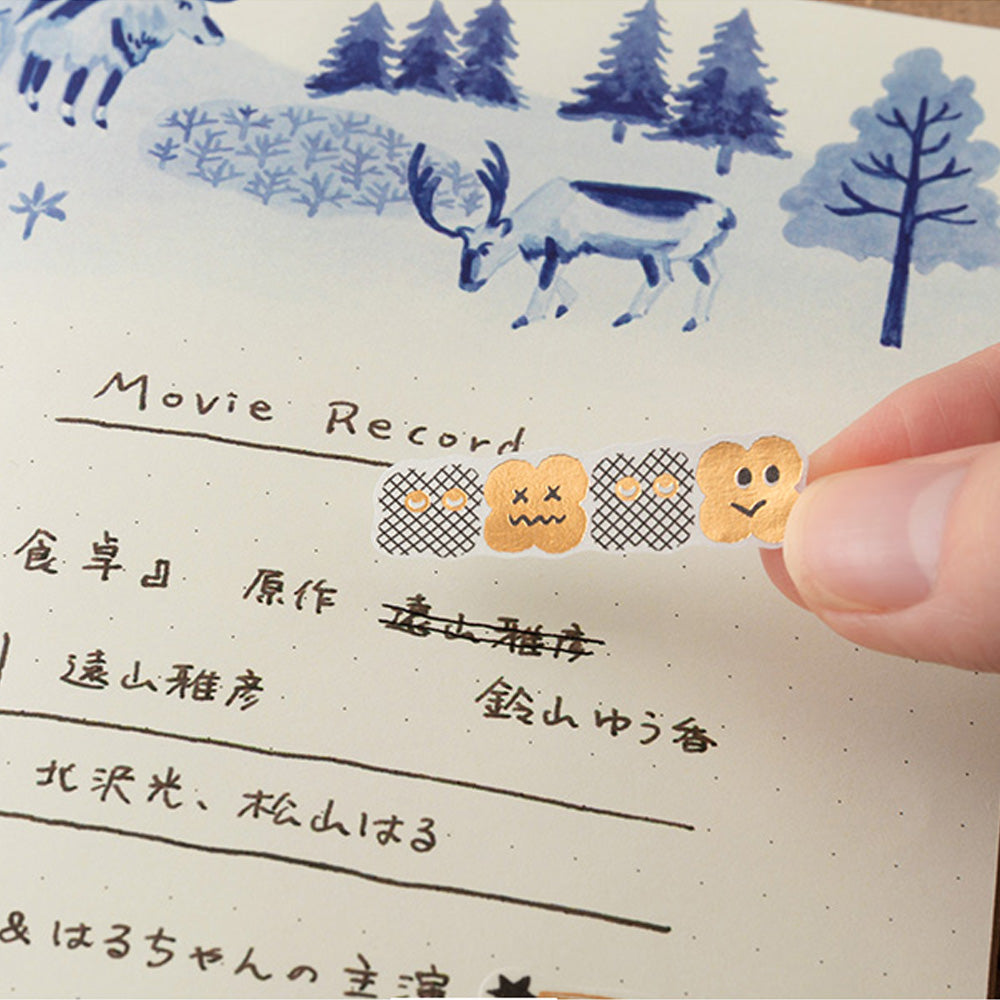 Movie Record
食卓』 原作 遠山雅彦
遠山雅彦 鈴山ゆう香
北沢光、松山はる
& はるちゃんの主演